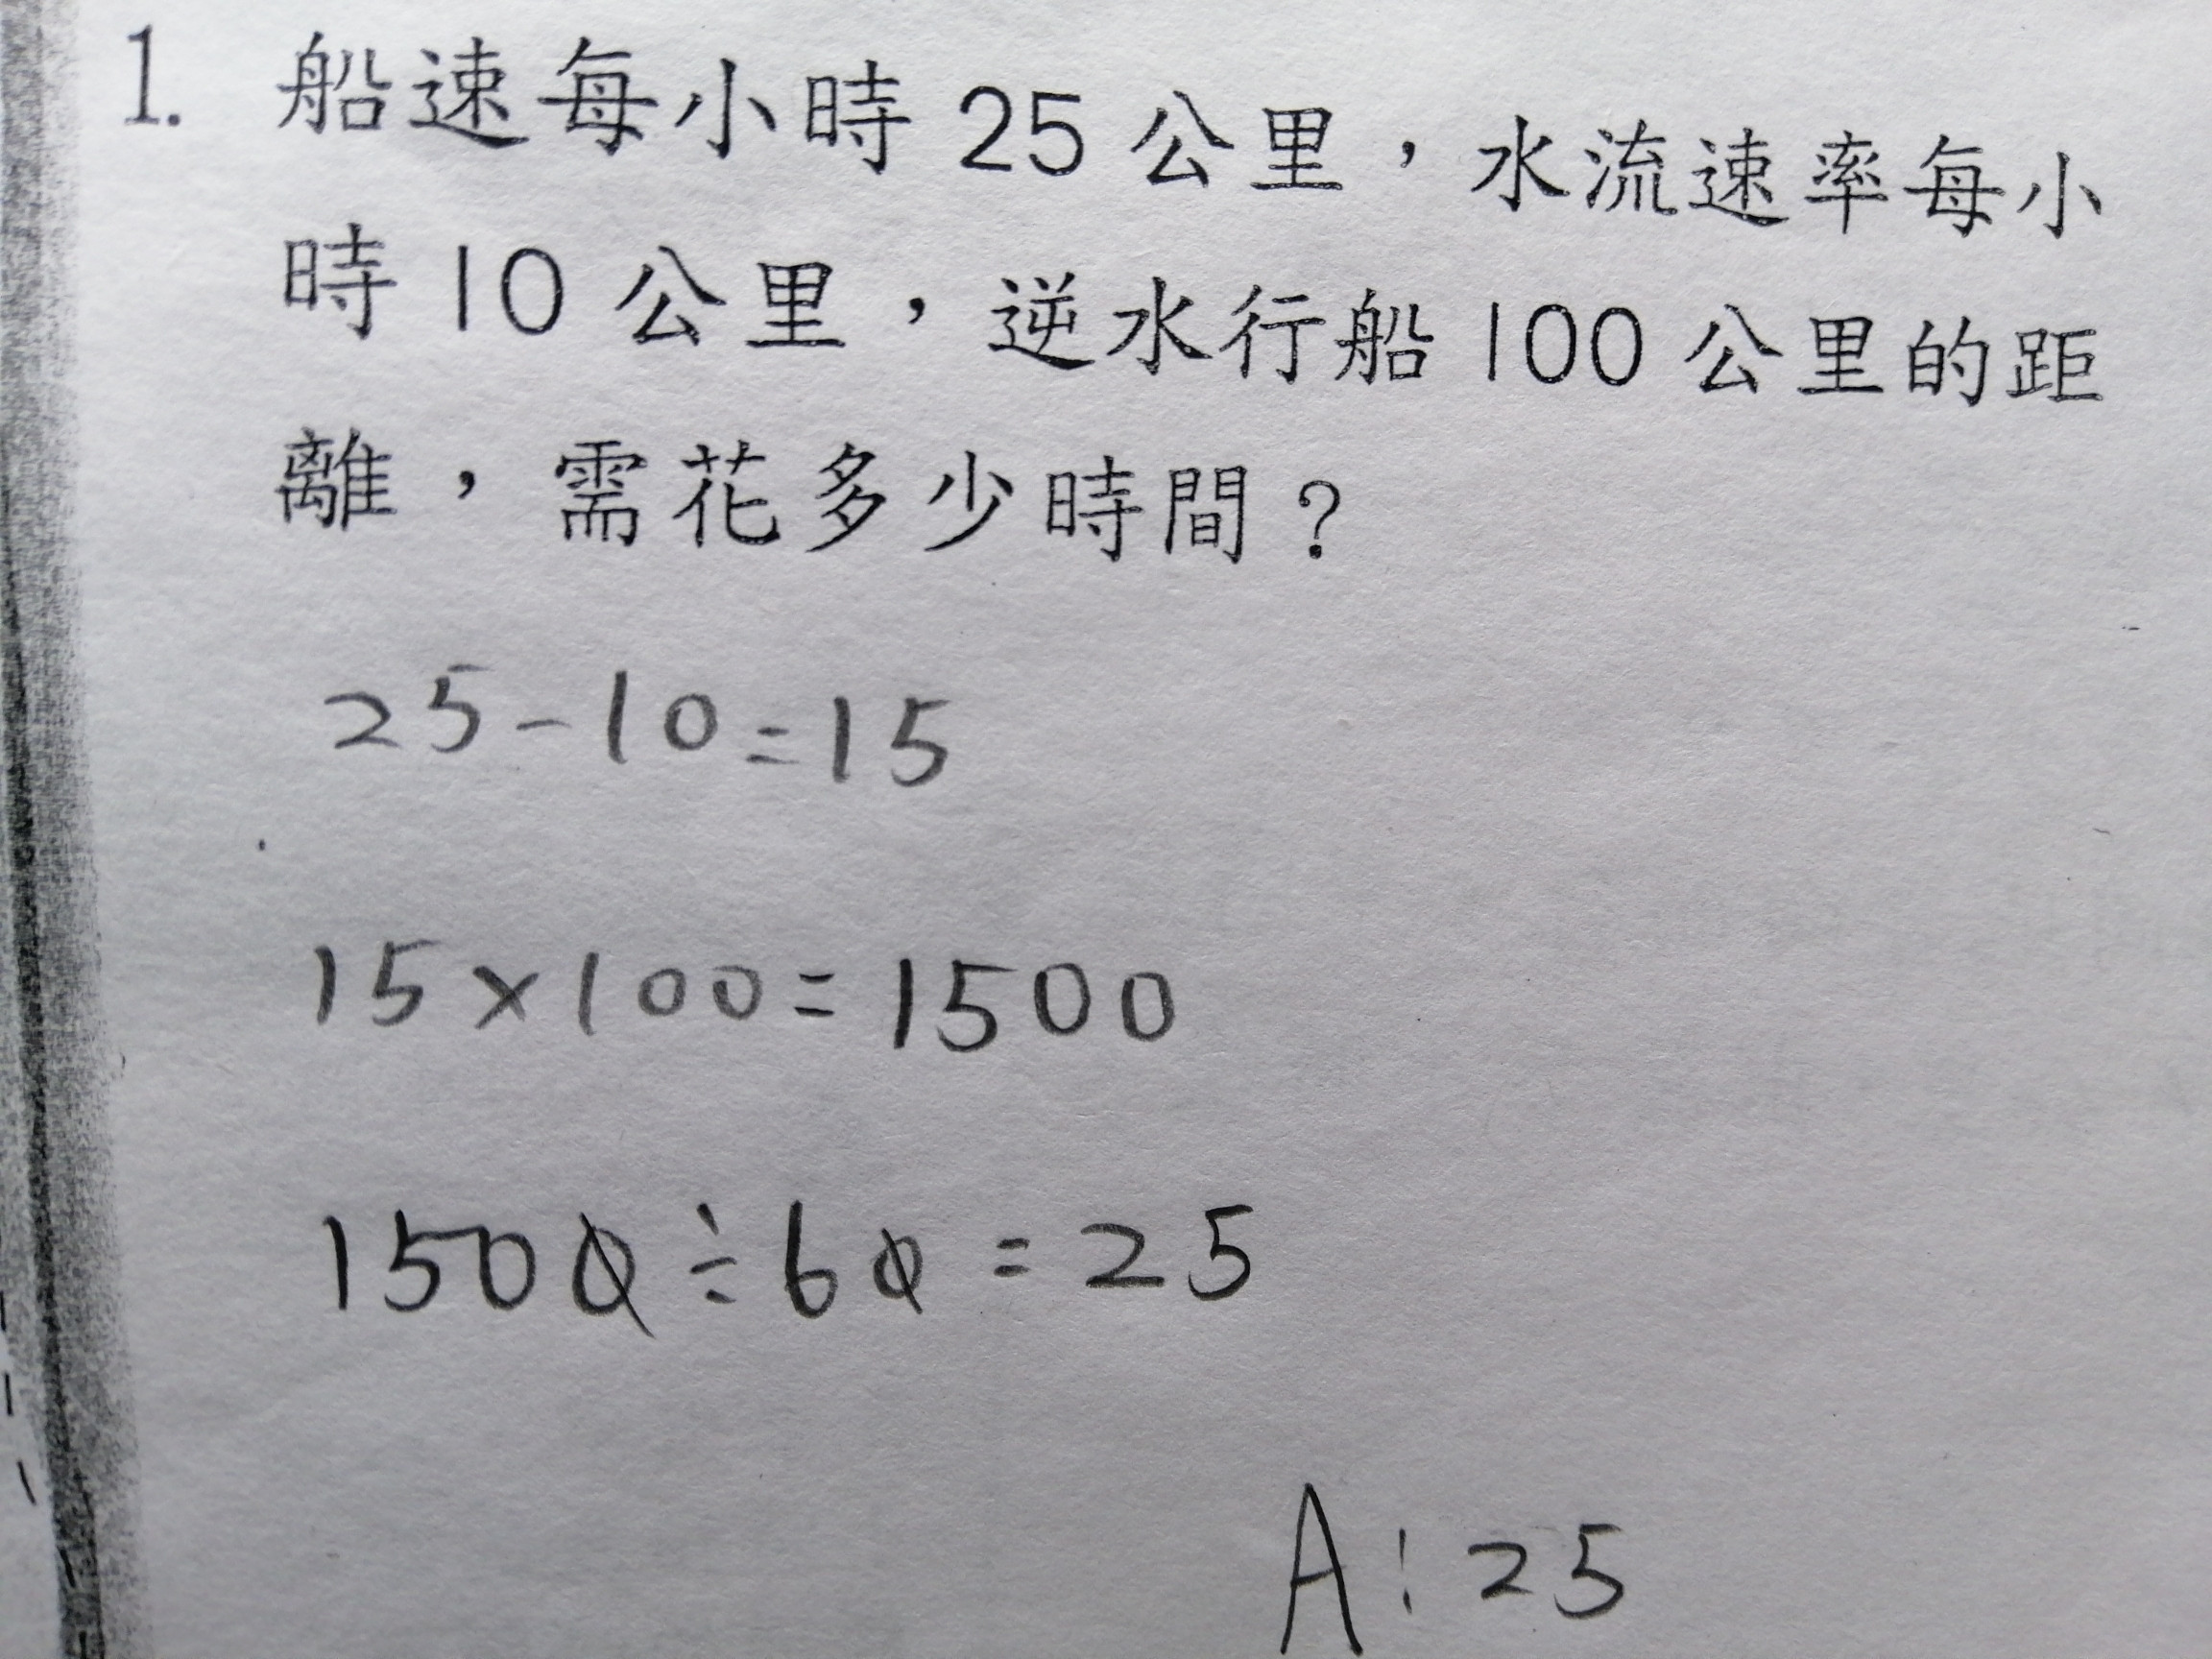 1. 船速每小時 25 公里，水流速率每小
時 10 公里，逆水行船 100 公里的距
離，需花多少時間？
25-10=15
15×100=1500
1500÷60=25
A:25